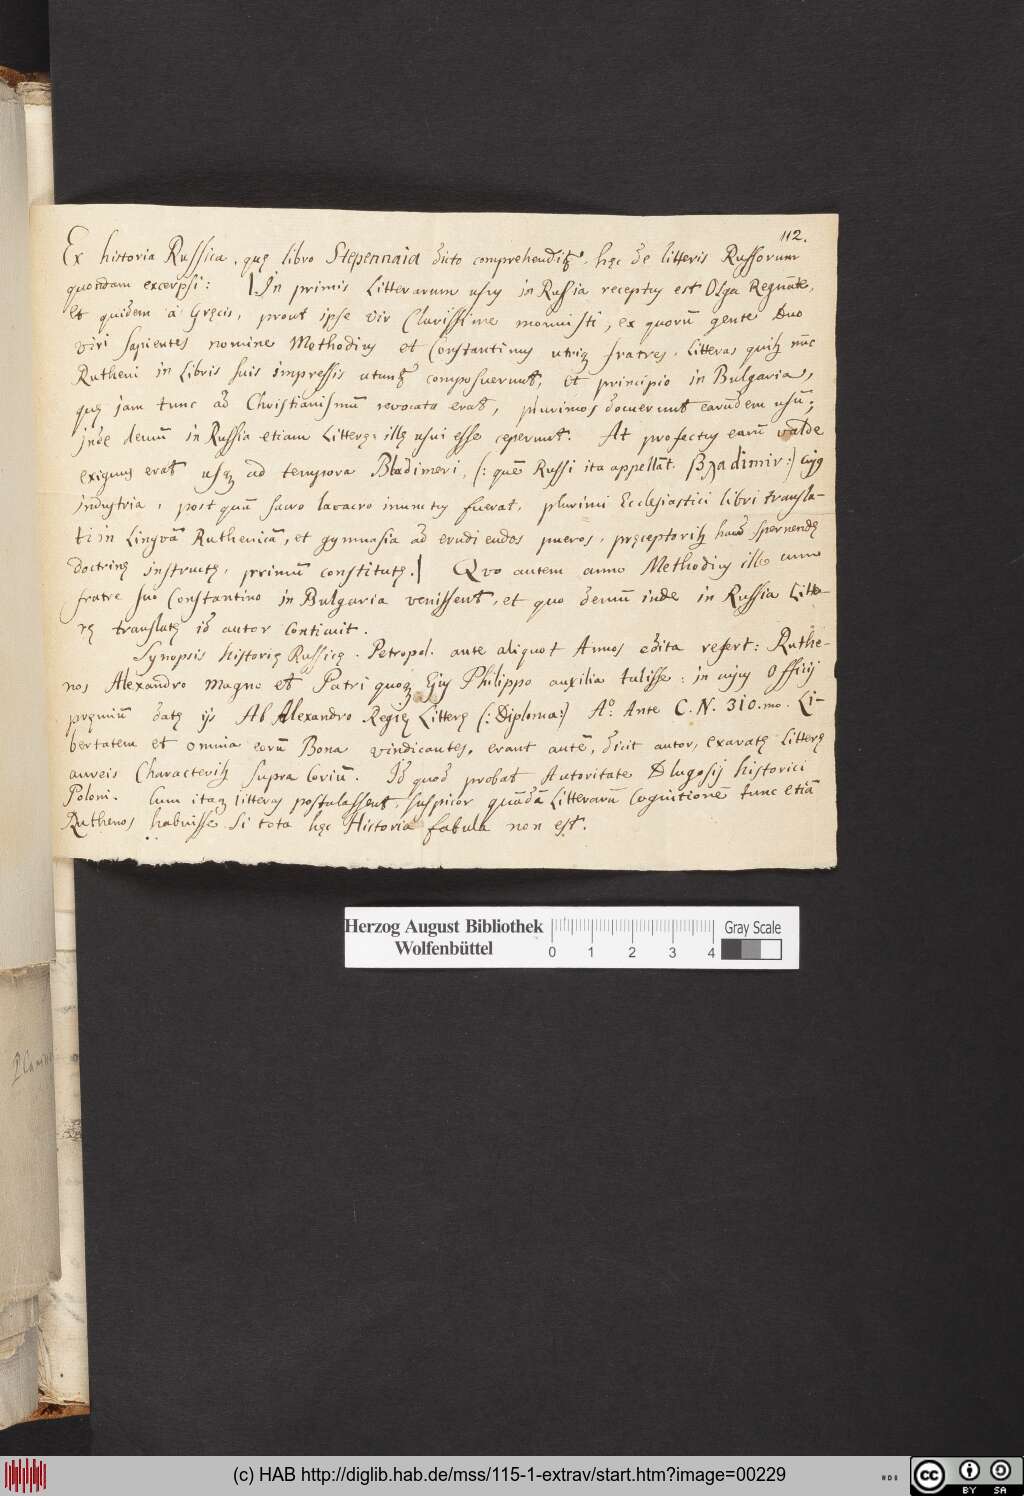 112.
Ex historia Russica, quę libro Stepennaia dicto comprehenditꝛ, hęc de litteris Russorum
quondam excerpsi: In primis Litterarum usꝰ in Russia receptꝰ est Olga Regnāte,
et quidem á Gręcis, prout ipse vir Clarissime monuisti, ex quorū gente Duo
viri sapientes nomine Methodiꝰ et Constantinus utriꝗ fratres, litteras quibꝫ nūc
Rutheni in Libris suis impressis utuntꝛ composuerunt, et principio in Bulgaria,
quę jam tunc ad Christianismū revocata erat, plurimos docuerunt earūdem usū;
inde demū in Russia etiam Litterę illę usui esse ceperunt. At profectꝰ earū valde
exiguus erat usꝗ ad tempora Bladimeri, (: quē Russi ita appellāt Владimir :) cujꝰ
industria, post quā sacro lavacro inunctꝰ fuerat, plurimi Ecclesiastici libri transla-
ti in Lingvā Ruthenicā, et gymnasia ad erudiendos pueros, pręceptoribꝫ haud spernendę
doctrinę instructę, primū constitutę. Qvo autem anno Methodiꝰ ille cum
fratre suo Constantino in Bulgaria venissent, et quo demū inde in Russia Litte-
rę translatę id autor conticuit.
Synopsis historię Russicę Petropol. ante aliquot Annos edita refert: Ruthe-
nos Alexandro magno et Patri quoꝗ Ejꝰ Philippo auxilia tulisse: in cujꝰ Officij
pręmiū datę ijs Ab Alexandro Regię Litterę (: Diploma :) Aº. Ante C. N. 310.mo. Li-
bertatem et omnia eorū Bona vindicantes, erant autē, dicit autor, exaratę litterę
aureis Characteribꝫ supra Coriū. Id quod probat Autoritate Dlugosij Historici
Poloni. Cum itaꝗ litteras postulassent, suspicor quādā Litterarū Cognitionē tunc etiā
Ruthenos habuisse si tota hęc Historia fabula non est.
Herzog August Bibliothek
Wolfenbüttel
0 1 2 3 4
Gray Scale
(c) HAB http://diglib.hab.de/mss/115-1-extrav/start.htm?image=00229
cc BY SA